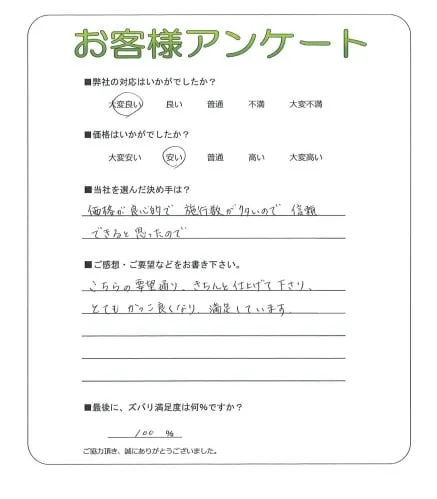 お客様アンケート
■弊社の対応はいかがでしたか?
大変良い 良い 普通 不満 大変不満
■価格はいかがでしたか?
大変安い 安い 普通 高い 大変高い
■当社を選んだ決め手は?
価格が良心的で 施行数が多いので 信頼
できると思ったので
■ご感想・ご要望などをお書き下さい。
こちらの要望通り、きちんと仕上げて下さり、
とても かっこ良くなり、満足しています.
■最後に、ズバリ満足度は何%ですか?
100 %
ご協力頂き、誠にありがとうございました。